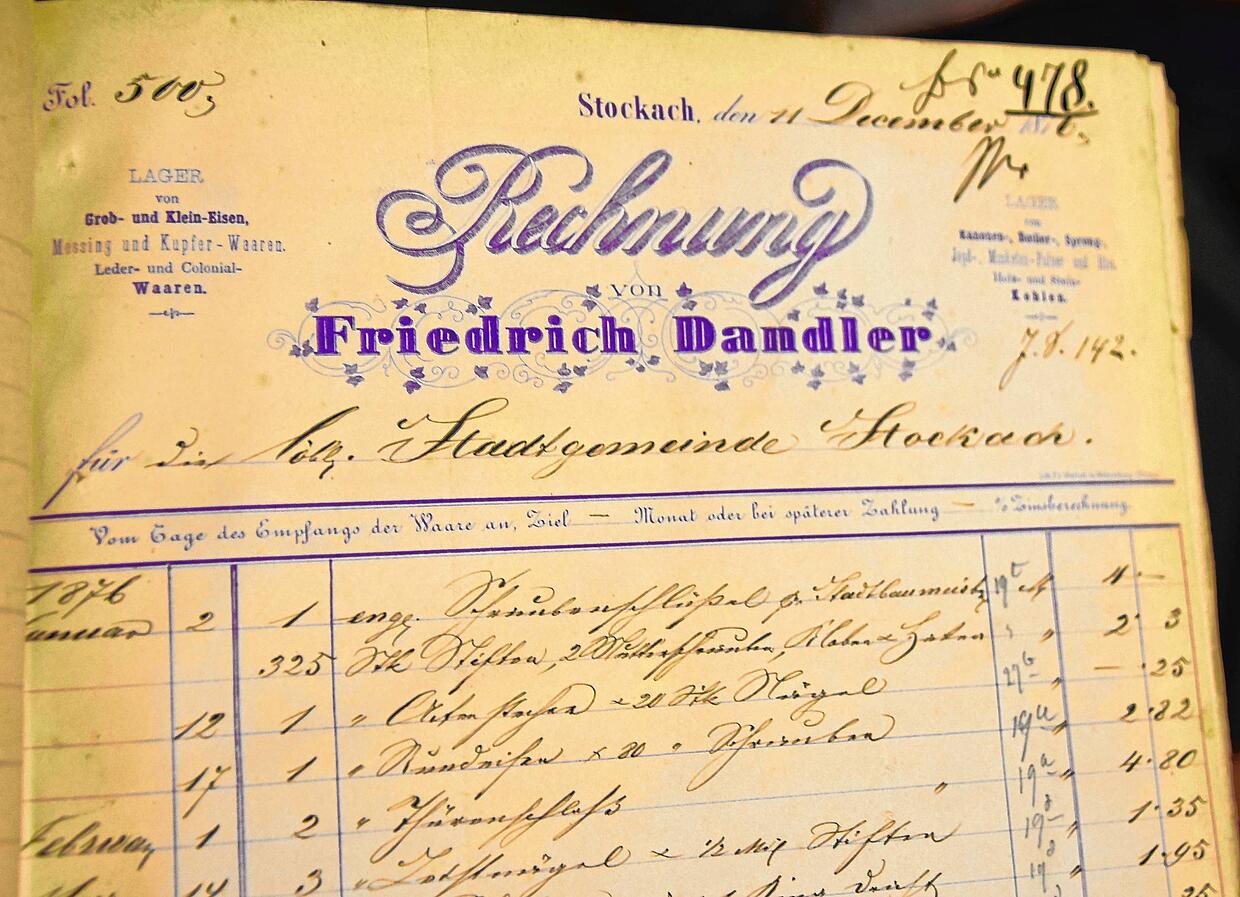 Fol. 500,
No 478.
Stockach, den 11 December 1876,
LAGER
von
Grob- und Klein-Eisen,
Messing und Kupfer-Waaren.
Leder- und Colonial-
Waaren.
Rechnung
von
Friedrich Dandler
LAGER
von
Kanonen-, Böller-, Spreng-,
Jagd-, Musketen-Pulver und
Holz- und Stein-
Kohlen.
J. S. 142.
für die löbl. Stadtgemeinde Stockach.
Vom Tage des Empfangs der Waare an, Ziel — Monat oder bei späterer Zahlung — % Zinsberechnung.
1876
Januar 2 1 engl. Schraubenschlüßel p. Stadtbaumeistr 4 —
325 Stk Stiften, 2 Mutterschrauben, Kloben & Haken 2 3
12 1 " & 20 Stk Nägel — 25
17 1 " Rundeisen & 80 " Schrauben 2.82
Februar 1 2 " Thürenschloß " 4.80
14 3 " & 1/2 Stiften 1.35
1.95